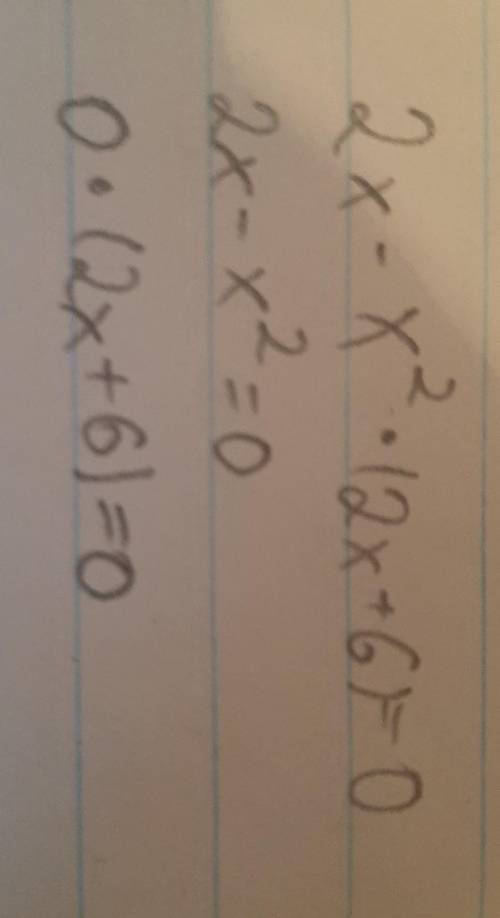 2x - x² · (2x + 6) = 0
2x - x² = 0
0 · (2x + 6) = 0